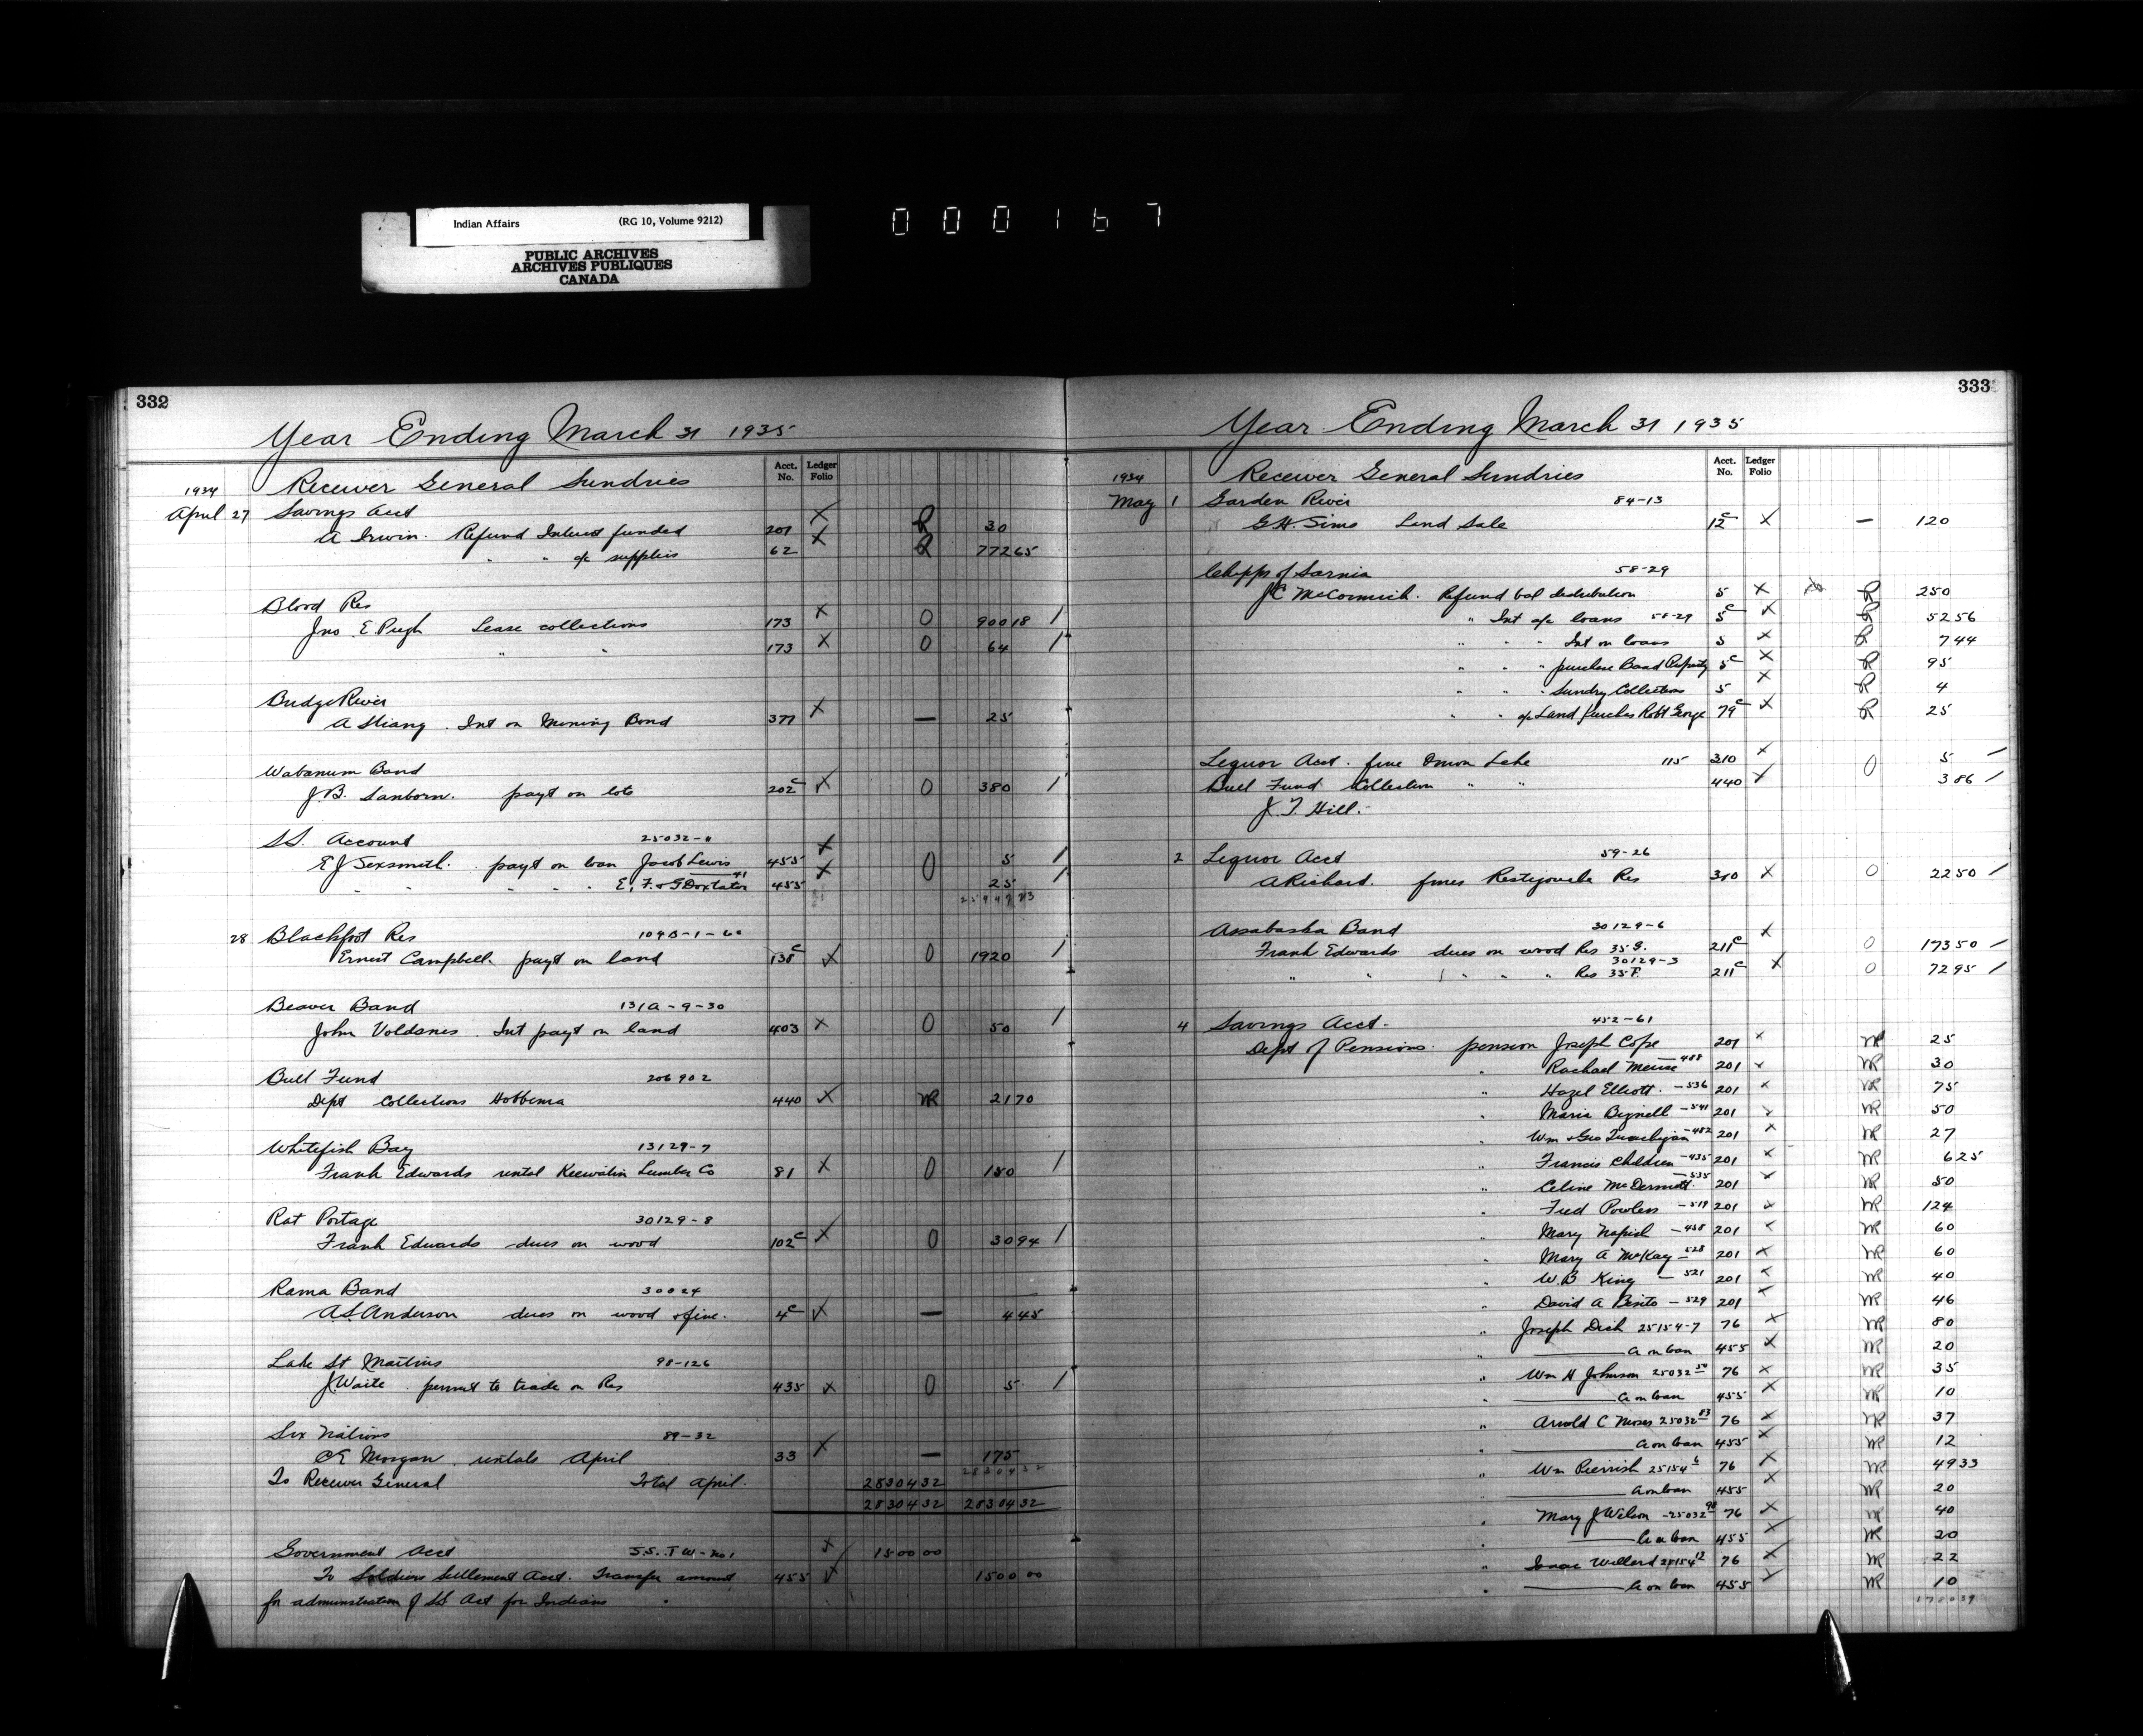 Indian Affairs (RG 10, Volume 9212)
PUBLIC ARCHIVES
ARCHIVES PUBLIQUES
CANADA
000167
332
Year Ending March 31 1935
Acct. No. Ledger Folio
1934 Receiver General Sundries
April 27 Savings Acct
A Irwin. Refund Interest funded 201 X R 30
" " o/c supplies 62 X R 772 65
Blood Res
Jno E Pugh Lease collections 173 X 0 900 18 /
" " 173 X 0 64 /
Bridge River
A Strang. Int on Mining Bond 377 X — 25
Wabamum Band
J.B. Sanborn. payt on lots 202c X 0 380 /
S.S. Account 25032-11
E J Sexsmith. payt on loan Jacob Lewis 455 X 0 5 /
" " " " E, F. & G Doxtator 41 455 X 25 /
28 Blackfoot Res 109B-1-60
Ernest Campbell payt on land 138c X 0 19 20 /
Beaver Band 131A-9-30
John Voldsnes. Int payt on land 403 X 0 50 /
Bull Fund 206902
Dept Collections Hobbema 440 X MR 21 70
Whitefish Bay 13129-7
Frank Edwards rental Keewatin Lumber Co 81 X 0 150 /
Rat Portage 30129-8
Frank Edwards dues on wood 102c X 0 30 94 /
Rama Band 30024
A.S. Anderson dues on wood & fine. 4c X — 4 45
Lake St Martins 98-126
J Waite permit to trade on Res 435 X 0 5 /
Six Nations 89-32
C E Morgan. rentals April 33 X — 175
28304 32
To Receiver General Total April. 28304 32
28304 32 28304 32
Government Acct S.S. T W-No1 X 1500 00
To Soldiers Settlement Acct. Transfer amount 455 X 1500 00
for administration of SS Act for Indians
333
Year Ending March 31 1935
Acct. No. Ledger Folio
1934 Receiver General Sundries
May 1 Garden River 84-13
G.H. Sims Land Sale 12c X — 120
Chipps of Sarnia 58-29
J C McCormick. Refund bal distribution 5 X R 250
" Int o/c loans 58-29 5c X R 52 56
" " " Int on loans 5 X R 7 44
" " " purchase Band Property 5c X R 95
" " " Sundry Collections 5 X R 4
" " o/c Land purchas Robt George 79c X R 25
Liquor Acct. fine Onion Lake 115 310 X 0 5 /
Bull Fund Collection " " 440 X 3 86 /
J. T. Hill.
2 Liquor Acct 59-26
A Richard. fines Restigouche Res 310 X 0 22 50 /
Assabaska Band 30129-6
Frank Edwards dues on wood Res 35 G. 211c X 0 173 50 /
30129-3
" " " " " Res 35 F. 211c X 0 72 95 /
4 Savings Acct. 452-61
Dept of Pensions. pension Joseph Cope 201 X MR 25
" Rachael Meuse —488 201 X MR 30
Hazel Elliott —536 201 X MR 75
" Maria Bignell —541 201 X MR 50
Wm & Geo —482 201 X MR 27
" Francis Children —435 201 X MR 6 25
" Celine McDermott —535 201 X MR 50
" Fred Powless —519 201 X MR 124
" Mary Napish —458 201 X MR 60
" Mary A McKay —528 201 X MR 60
" W.B King —521 201 X MR 40
" David A Bisito —529 201 X MR 46
" Joseph Dick 25154-7 76 X MR 80
" ——— a on loan 455 X MR 20
" Wm H Johnson 25032-50 76 X MR 35
" ——— a on loan 455 X MR 10
" Arnold C Moses 25032-83 76 X MR 37
——— a on loan 455 X MR 12
" Wm Peernish 25154-6 76 X MR 49 33
——— a on loan 455 X MR 20
" Mary J Wilson —25032-98 76 X MR 40
——— a on loan 455 X MR 20
" Isaac Willard 25154-12 76 X MR 22
" ——— a on loan 455 X MR 10